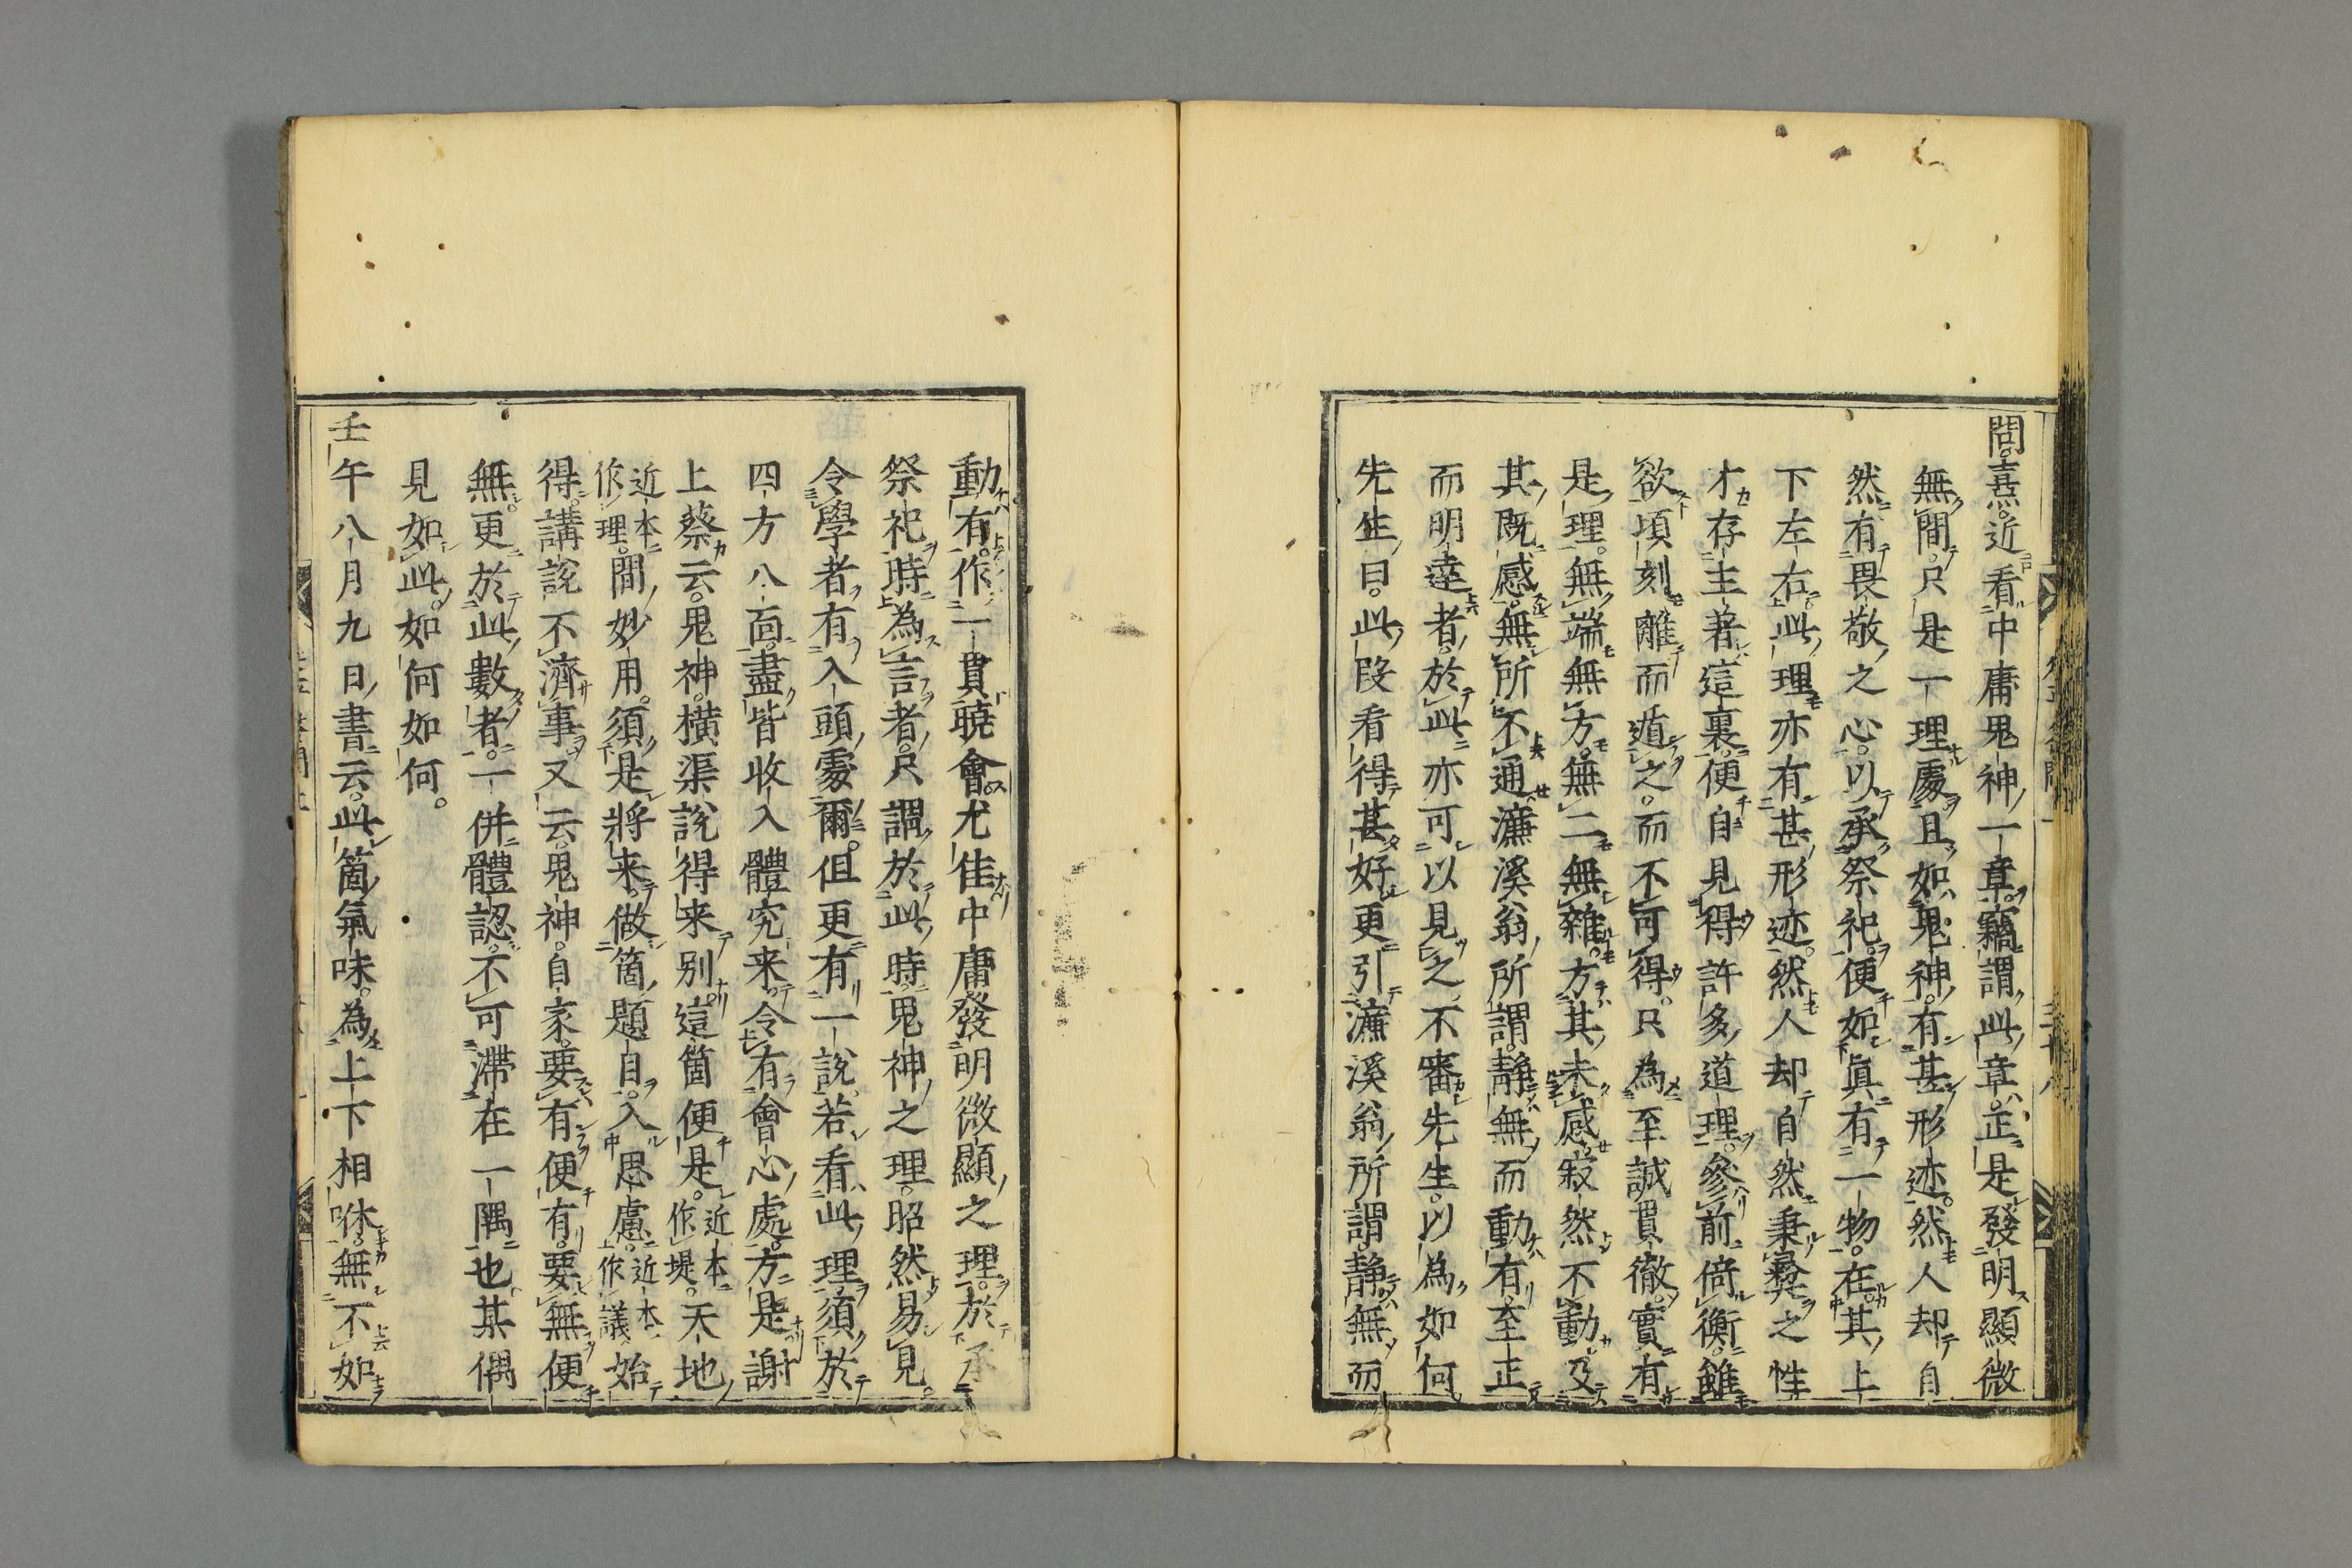 問。熹。近看中庸鬼神一章。竊謂此章。正是發明顯微
無間。只是一理處。且如鬼神。有甚形迹。然人却自
然有畏敬之心。以承祭祀。便如眞有一物。在其上
下左右。此理亦有甚形迹。然人却自然秉彛之性
才存主著這裏。便自見得許多道理。參前倚衡。雖
欲頃刻離而遁之。而不可得。只為至誠貫徹。實有
是理。無端無方。無二無雜。方其未感。寂然不動。及
其既感。無所不通。濂溪翁所謂。靜無而動有。至正
而明達者。於此亦可以見之。不審先生。以為如何
先生曰。此段看得甚好。更引濂溪翁所謂。靜無而
動有。作一貫曉會。尤佳。中庸發明微顯之理。於承
祭祀時。為言者。只謂於此時。鬼神之理。昭然易見。
令學者有入頭處爾。但更有一說。若看此理。須於
四方八面。盡皆收入體究来。令有會心處。方是。謝
上蔡云。鬼神。橫渠說得来別。這箇便是。近本作堤。天地
近本作理。間妙用。須是將来。做箇題自。入思慮。近本作議。始
得。講說不濟事。又云。鬼神。自家。要有便有。要無便
無。更於此數者。一併體認。不可滯在一隅也。某偶
見如此。如何如何。
壬午八月九日書云。此箇氣味。為上下相咻。無不如